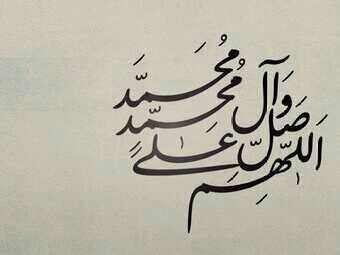 اللّهم صلّ علی محمّد وآل محمّد